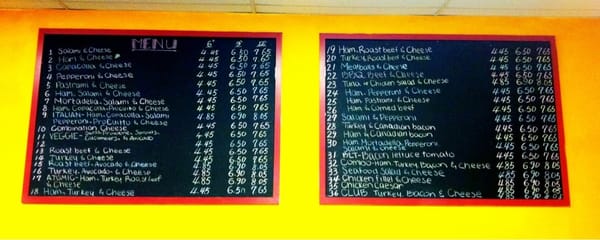 MENU 6" 9" 12"
1 Salami & Cheese 4.45 6.50 7.65
2 Ham & Cheese 4.45 6.50 7.65
3 Capacolla & Cheese 4.45 6.50 7.65
4 Pepperoni & Cheese 4.45 6.50 7.65
5 Pastrami & Cheese 4.45 6.50 7.65
6 Ham, Salami & Cheese 4.45 6.50 7.65
7 Mortadella, Salami & Cheese 4.45 6.50 7.65
8 Ham, Coracolla-Procuitto & Cheese 4.45 6.50 7.65
9 ITALIAN-Ham, Coracolla, Salami 4.85 6.90 8.05
Pepperoni-Procuitto & Cheese
10 Combination Cheese 4.45 6.50 7.65
VEGGIE- Sprouts, 4.45 6.50 7.65
Cucumbers, & Avocado
12
Roast beef & Cheese 4.45 6.50 7.65
14 Turkey & Cheese 4.45 6.50 7.65
15 Roast beef, Avocado & Cheese 4.85 6.90 8.05
16 Turkey, Avocado & Cheese 4.85 6.90 8.05
17 ATOMIC-Ham, Turkey, Roast beef 4.85 6.90 8.05
& Cheese
18 Ham, Turkey & Cheese 4.45 6.50 7.65
19 Ham, Roast beef & Cheese 4.45 6.50 7.65
20 Turkey, Roast beef & Cheese 4.45 6.50 7.65
21 Meatballs & Cheese 4.45 6.50 7.65
22 BBQ Beef & Cheese 4.45 6.50 7.65
23 Tuna or Chicken salad & Cheese 4.85 6.90 8.05
24 Ham, Pepperoni & Cheese 4.45 6.50 7.65
25 Ham, Pastrami & Cheese 4.45 6.50 7.65
26 Ham & Corned beef 4.45 6.50 7.65
29 Salami & Pepperoni 4.45 6.50 7.65
28 Turkey & Canadian bacon 4.45 6.50 7.65
29 Ham & Canadian bacon 4.45 6.50 7.65
30 Ham, Mortadella, Pepperoni 4.45 6.50 7.65
Salami & Cheese
31 BLT-Bacon lettuce tomato 4.45 6.50 7.65
32 Turkey, Bacon & Cheese 4.85 6.90 8.05
33 Seafood Salad & Cheese 4.85 6.90 8.05
34 Chicken Fillet & Cheese 4.85 6.90 8.05
35 Chicken Caesar 4.85 6.90 8.05
36 CLUB Turkey, Bacon & Cheese 4.85 6.90 8.05